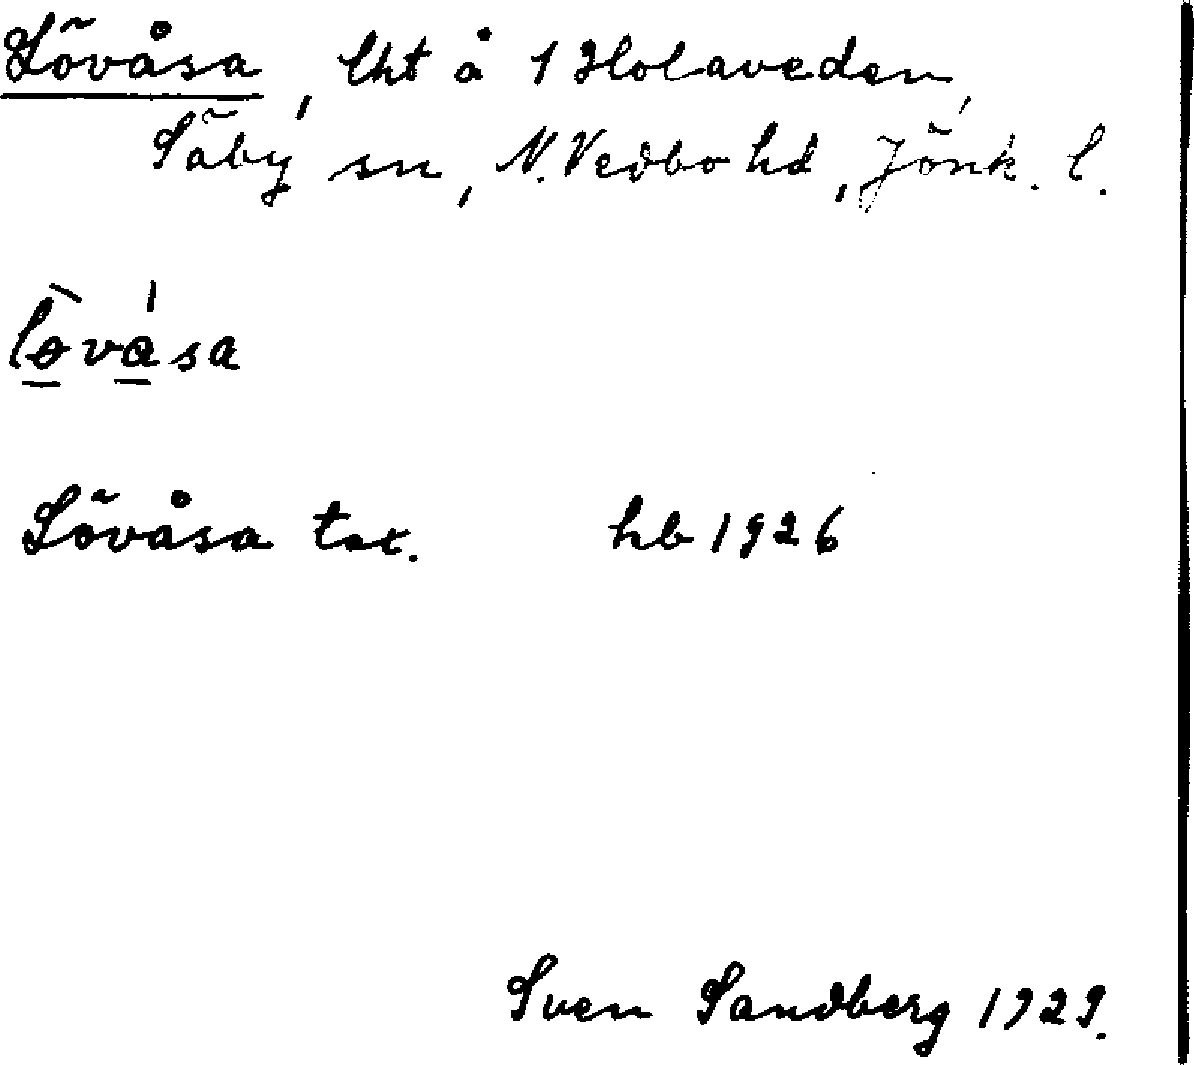 Lövåsa, lht å 1 Holaveden,
Säby sn, N. Vedbo hd, Jönk. l.
lòvása
Lövåsa tax. hb 1926
Sven Sandberg 1929.